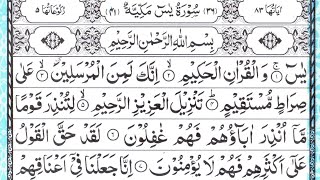 اٰيَاتُهَا ٨٣ (٣٦) سُوۡرَةُ يٰسٓ مَكِّيَّةٌ (٤١) رُكُوۡعَاتُهَا ٥
بِسۡمِ اللّٰهِ الرَّحۡمٰنِ الرَّحِيۡمِ
يٰسٓ ۚ﴿۱﴾ وَ الۡقُرۡاٰنِ الۡحَكِيۡمِ ۙ﴿۲﴾ اِنَّكَ لَمِنَ الۡمُرۡسَلِيۡنَ ۙ﴿۳﴾ عَلٰى
صِرَاطٍ مُّسۡتَقِيۡمٍ ؕ﴿۴﴾ تَنۡزِيۡلَ الۡعَزِيۡزِ الرَّحِيۡمِ ۙ﴿۵﴾ لِتُنۡذِرَ قَوۡمًا
مَّاۤ اُنۡذِرَ اٰبَآؤُهُمۡ فَهُمۡ غٰفِلُوۡنَ ﴿۶﴾ لَقَدۡ حَقَّ الۡقَوۡلُ
عَلٰٓى اَكۡثَرِهِمۡ فَهُمۡ لَا يُؤۡمِنُوۡنَ ﴿۷﴾ اِنَّا جَعَلۡنَا فِىۡۤ اَعۡنَاقِهِمۡ